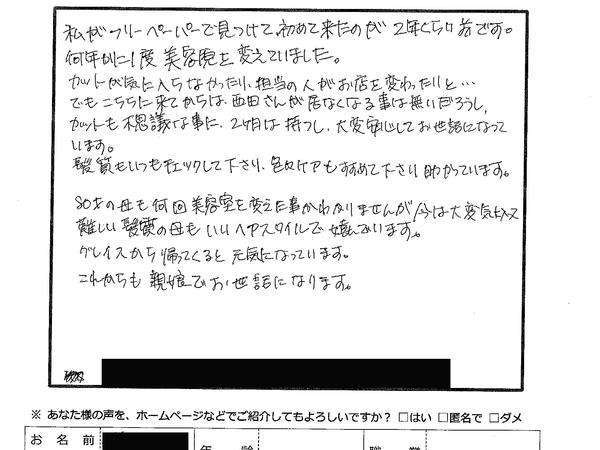 私がフリーペーパーで見つけて、初めて来たのが2年くらい前です。
何年かに1度美容院を変えていました。
カットが気に入らなかったり、担当の人がお店を変わったりと…
でもこちらに来てからは、西田さんが居なくなる事は無いだろうし、
カットも不思議な事に、2ヶ月は持つし、大変安心してお世話になって
います。
髪質もいつもチェックして下さり、色々ケアもすすめて下さり助かっています。
80才の母も何回美容室を変えた事かわかりませんが今は大変気に入って
難しい髪質の母もいいヘアスタイルで嬉んでいます。
グレイスから帰ってくると元気になっています。
これからも親娘でお世話になります。
※ あなた様の声を、ホームページなどでご紹介してもよろしいですか? □はい □匿名で □ダメ
お 名 前 年 齢 職 業